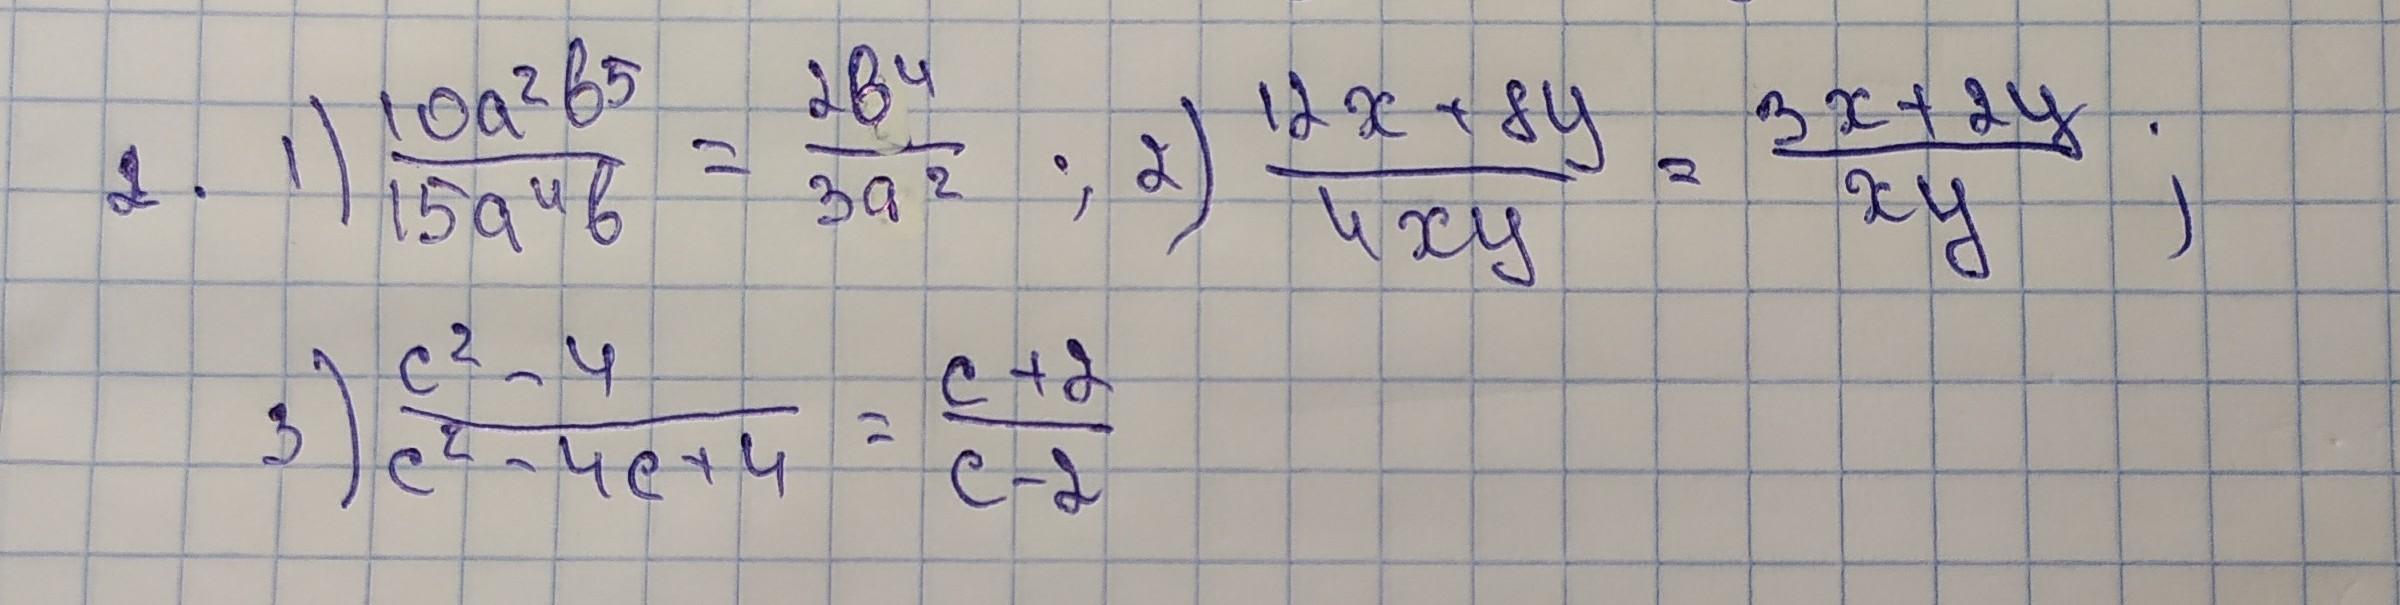 2. 1) \frac{10a^2b^5}{15a^4b} = \frac{2b^4}{3a^2}; 2) \frac{12x+8y}{4xy} = \frac{3x+2y}{xy};
3) \frac{c^2-4}{c^2-4c+4} = \frac{c+2}{c-2}